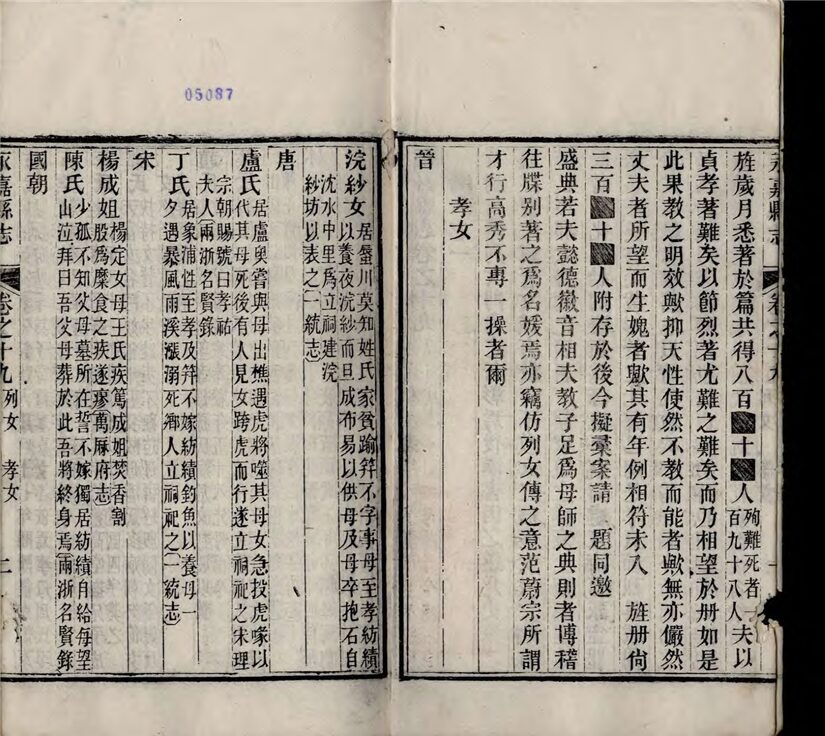 05087
永嘉縣志
旌歲月悉著於篇共得八百十人殉難死者一
百九十八人夫以
貞孝著難矣以節烈著尤難之難矣而乃相望於册如是
此果教之明效歟抑天性使然不教而能者歟無亦儼然
丈夫者所望而生媿者歟其有年例相符未入 旌册尙
三百十人附存於後今擬彙案請 題同邀
盛典若夫懿德徽音相夫教子足爲母師之典則者博稽
往牒别著之爲名媛焉亦竊仿列女傳之意范蔚宗所謂
才行高秀不專一操者爾
孝女
晉
浣紗女居蜃川莫知姓氏家貧踰笄不字事母至孝紡績
以養夜浣紗而旦成布易以供母及母卒抱石自
沈水中里爲立祠建浣
紗坊以表之一統志
唐
盧氏居盧奥嘗與母出樵遇虎將噬其母女急投虎喙以
代其母死後有人見女跨虎而行遂立祠祀之宋理
宗朝賜號曰孝祐
夫人兩浙名賢錄
丁氏居象浦性至孝及笄不嫁紡績釣魚以養母一
夕遇暴風雨溪漲溺死鄉人立祠祀之一統志
宋
楊成姐楊定女母王氏疾篤成姐焚香割
股爲糜食之疾遂瘳萬厤府志
陳氏少孤不知父母墓所在誓不嫁獨居紡績自給每望
山泣拜曰吾父母葬於此吾將終身焉兩浙名賢錄
國朝
永嘉縣志 卷之十九 列女 孝女 二